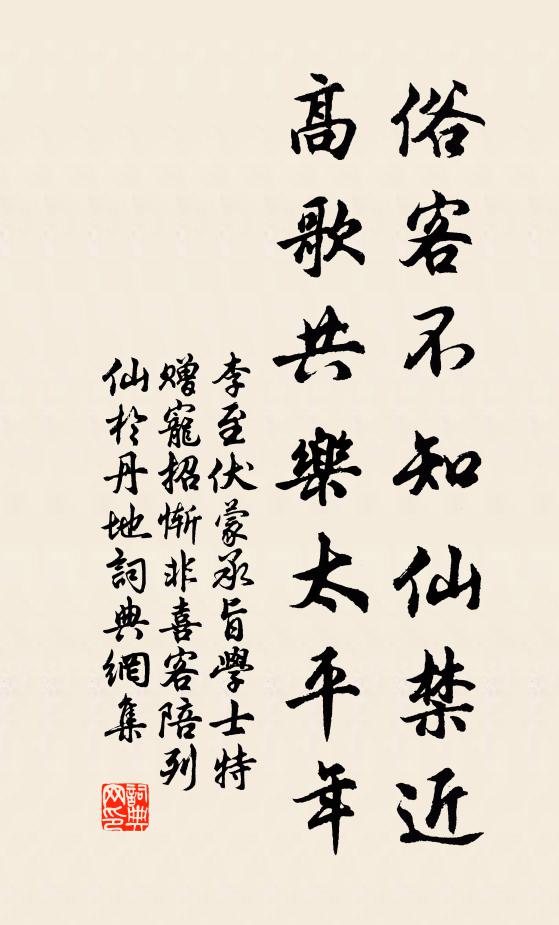 俗客不知仙禁近
高歌共樂太平年
李至伏蒙承旨學士特
贈寵招慚非喜客陪列
仙於丹地詞典網集
詞典
网印